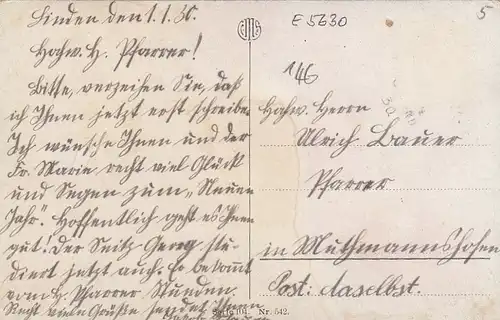 Linden den 1.1.30.
Hochw. H. Pfarrer!
Bitte, verzeihen Sie, daß
ich Ihnen jetzt erst schreibe.
Ich wünsche Ihnen und der
Fr. Marie recht viel Glück
und Segen zum „Neuen
Jahr". Hoffentlich geht es Ihnen
gut! Der Seitz Georg stu-
diert jetzt auch. Er bekommt
vom H. Pfarrer Stunden.
Recht viele Grüße sendet Ihnen
E 5630
5
146
Hochw. Herrn
Ulrich Bauer
Pfarrer
in Muthmannshofen
Post: daselbst.
Serie 104. Nr. 542.